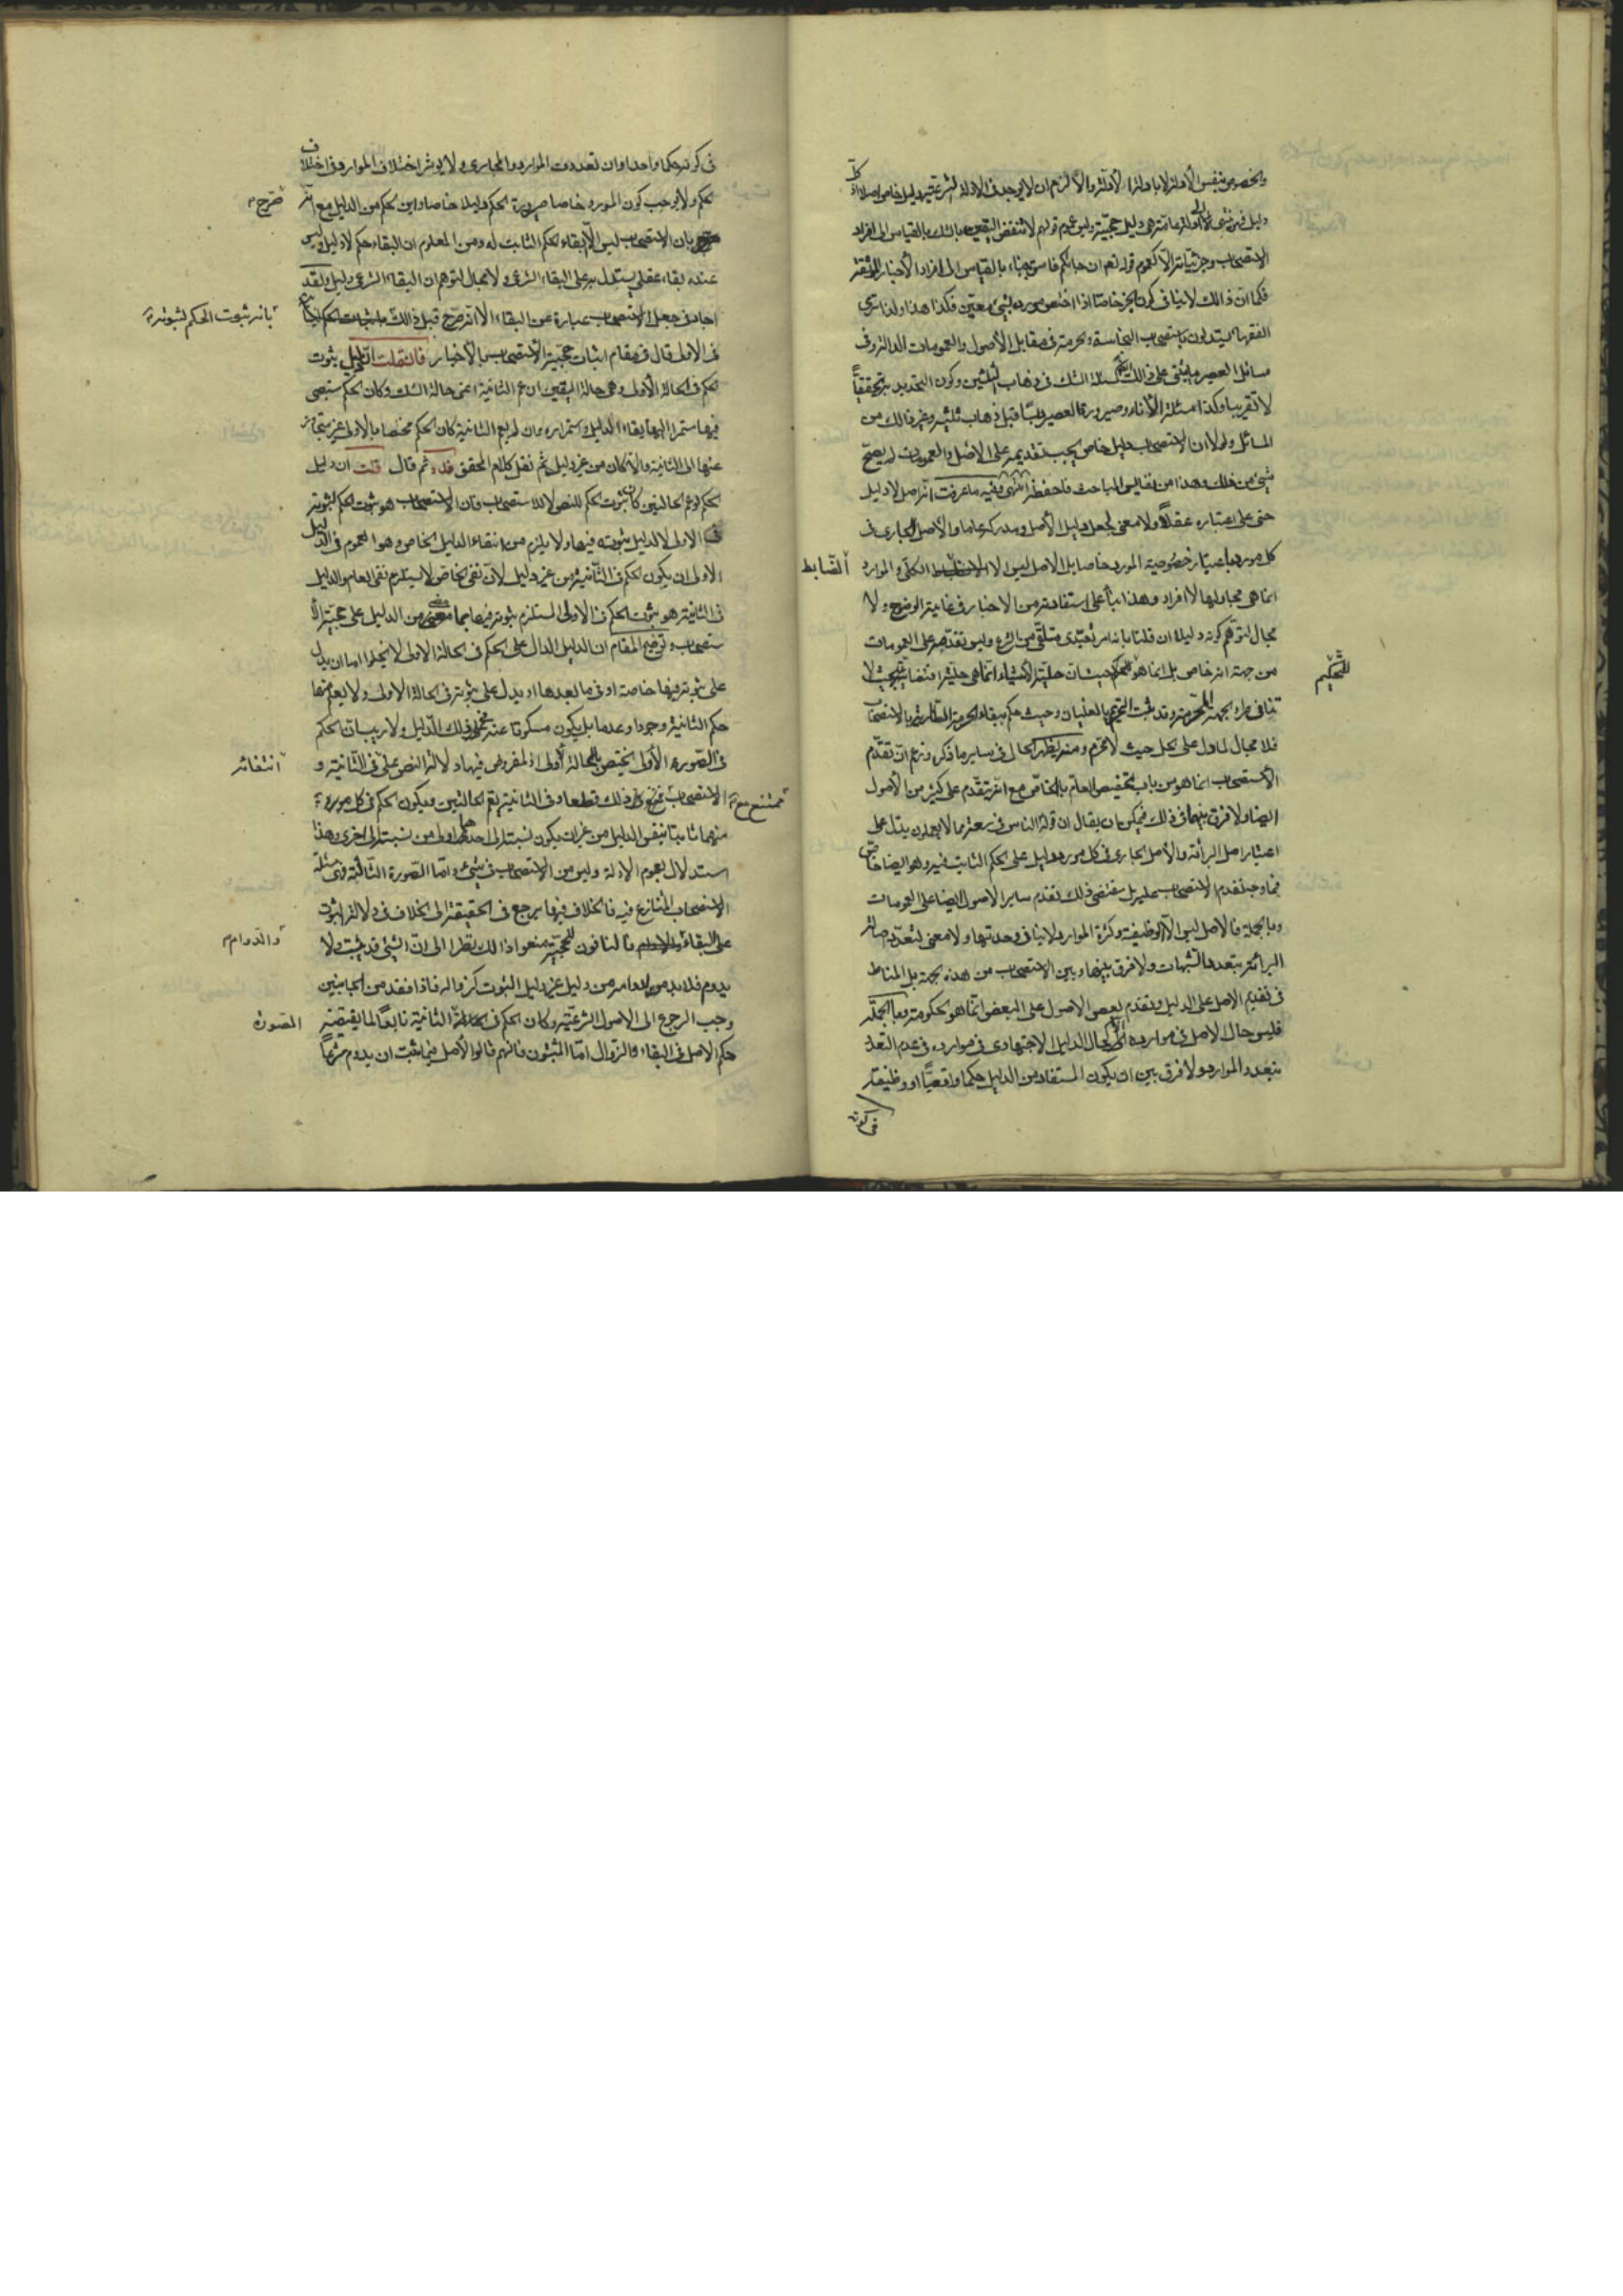 والخصوص بنفس الأدلة لا بادلة الأدلة والا لزم ان لا يوجد في الادلة الشرعية دليل خاص اصلا اذ كل
دليل فهو ينتهي الى ادلة عامة هي دليل حجيته وليس عموم قولهم لا تنقض اليقين بالشك بالقياس الى افراد
الاستصحاب وجزئياته الا كعموم قوله نعم ان جاءكم فاسق بنباء بالقياس الى افراد الأخبار
فكما ان ذالك لا ينافي كون الخبر خاصا اذا اختص مورده بشيئ معين فكذا هذا ولذا نرى
الفقهاء يستدلون باستصحاب النجاسة والحرمة في مقابل الأصول والعمومات الدالة وفي
مسائل العصير ما يبتني على ذالك كمسئلة الشك في ذهاب الثلثين وكون التحديد تحقيقياً
لا تقريبا وكذا مسئلة الأناء وصيرورة العصير دبسا قبل ذهاب ثلثيه وغير ذالك من
المسائل ولولا ان الاستصحاب دليل خاص يجب تقديمه على الاصل والعمومات لم يصح
شيئ من ذلك وهذا من نفايس المباحث فاحفظه انتهى وفيه ما عرفت انه اصل لا دليل
حتى على اعتباره عقلا ولا معنى لجعل دليل الأصل ومدركه عاما والأصل الجاري في
كل مورد باعتبار خصوصية المورد خاصا بل الاصل ليس الا الضابط الكلي والموارد
انما هي مجاريها لا افراد وهذا بناء على استفادته من الاخبار في غاية الوضوح ولا
مجال لتوهم كونه دليلا ان قلنا بانه امر تعبدي متلقى من الشرع وليس تقدمه على العمومات
من جهة انه خاص بل انما هو للتحكيم حيث ان حلية الأشياء انما هي حلية اقتضائية بحيث لا
تنافي طروء الجهة المحرمة وقد ثبت التحريم بالغليان وحيث حكم ببقاء الحرمة الطارية بالاستصحاب
فلا مجال لما دل على الحل حيث لا محرم ومنه يظهر الحال في ساير ما ذكر وزعم ان تقدم
الأستصحاب انما هو من باب تخصيص العام بالخاص مع انه يتقدم على كثير من الأصول
ايضا ولا فرق بينهما في ذلك فيمكن ان يقال ان قوله الناس في سعة مما لا يعلمون يدل على
اعتبار اصل البرائة والأصل الجاري في كل مورد دليل على الحكم الثابت فيه وهو ايضا خاص
فما وجه تقدم الاستصحاب عليه بل مقتضى ذلك تقدم ساير الاصول ايضا على العمومات
وبالجملة فالاصل ليس الا الوظيفة وكثرة الموارد لا ينافي وحدتها ولا معنى لتعدد اصالة
البرائة بتعدد الشبهات ولا فرق بينها وبين الاستصحاب من هذه الجهة بل المناط
في تقديم الاصل على الدليل وتقدم بعض الاصول على البعض انما هو الحكومة وبالجملة
فليس حال الاصل في موارده الا كحال الدليل الاجتهادي في موارده في عدم التعدد
بتعدد الموارد ولا فرق بين ان يكون المستفاد من الدليل حكما واقعيا او وظيفة
في كونه
الضابط
للتحكيم
في كونه حكما واحدا وان تعددت الموارد والمجاري ولا يوثر اختلاف الموارد في اختلاف
الحكم ولا يوجب كون المورد خاصا صيرورة الحكم دليلا خاصا واين الحكم من الدليل مع انه
صرح
بان الاستصحاب ليس الا ابقاء الحكم الثابت له ومن المعلوم ان البقاء حكم لا دليل وليس
عنده بقاء عقلي يستدل به على البقاء الشرعي ولا مجال لتوهم ان البقاء الشرعي دليل ولقد
اجاد في جعل الاستصحاب عبارة عن البقاء الا انه صرح قبل ذالك
بانه ثبوت الحكم لثبوته
في الاولى قال في مقام اثبات حجية الاستصحاب بالأخبار فان قلت ان الدليل بثبوت
الحكم في الحالة الأولى وهي حالة اليقين ان عم الثانية اعني حالة الشك وكان الحكم مستبقى
فيها مستمرا اليها بقاء الدليل واستمراره وان لم يعم الثانية كان الحكم مختصا بالاولى غير متجاوز
عنها الى الثانية والا كان من غير دليل ثم نقل كلام المحقق قده ثم قال قلت ان دليل
الحكم لو عم الحالتين كان ثبوت الحكم للنص لا للاستصحاب فان الاستصحاب هو ثبوت الحكم لثبوته
في الاولى لا لدليل ثبوته فيها ولا يلزم من انتفاء الدليل الخاص وهو العموم في الدليل
الاولى ان يكون الحكم في الثانية من غير دليل لان نفي الخاص لا يستلزم نفي العام والدليل
في الثانية هو ثبوت الحكم في الاولى المستلزم ثبوته فيها بما مضى من الدليل على حجية الا
ستصحاب وتوضيح المقام ان الدليل الدال على الحكم في الحالة الاولى لا يخلوا اما ان يدل
على ثبوته فيها خاصة او في ما بعدها او يدل على ثبوته في الحالة الاولى ولا يعلم منها
حكم الثانية وجودا وعدما بل يكون مسكوتا عنه في ذلك الدليل ولا ريب ان الحكم
في الصورة الأولى يختص بالحالة الأولى اذ المفروض فيها دلالة النص على
انتفائه
في الثانية و
الاستصحاب
ممتنع مع
ذلك قطعا وفي الثانية يعم الحالتين ويكون الحكم في كل
منهما ثابتا بنفس الدليل من غير ان يكون نسبته الى احدهما اولى من نسبته الى اخرى وهذا
استدلال بعموم الادلة وليس من الاستصحاب في شيئ واما الصورة الثالثة وهي مسئلة
الاستصحاب المتنازع فيه فالخلاف فيها يرجع في الحقيقة الى الخلاف في دلالة الثبوت
على البقاء
والدوام
فالنافون للحجية منعوا ذالك نظرا الى ان الشيئ قد يثبت ولا
يدوم فلا بد لدوامه من دليل غير دليل الثبوت كزواله فاذا فقد من الجانبين
وجب الرجوع الى الاصول الشرعية وكان الحكم في
الصورة
الثانية تابعا لما يقتضيه
حكم الاصل في البقاء والزوال اما المثبتون فانهم قالوا الأصل فيما ثبت ان يدوم شرعاً